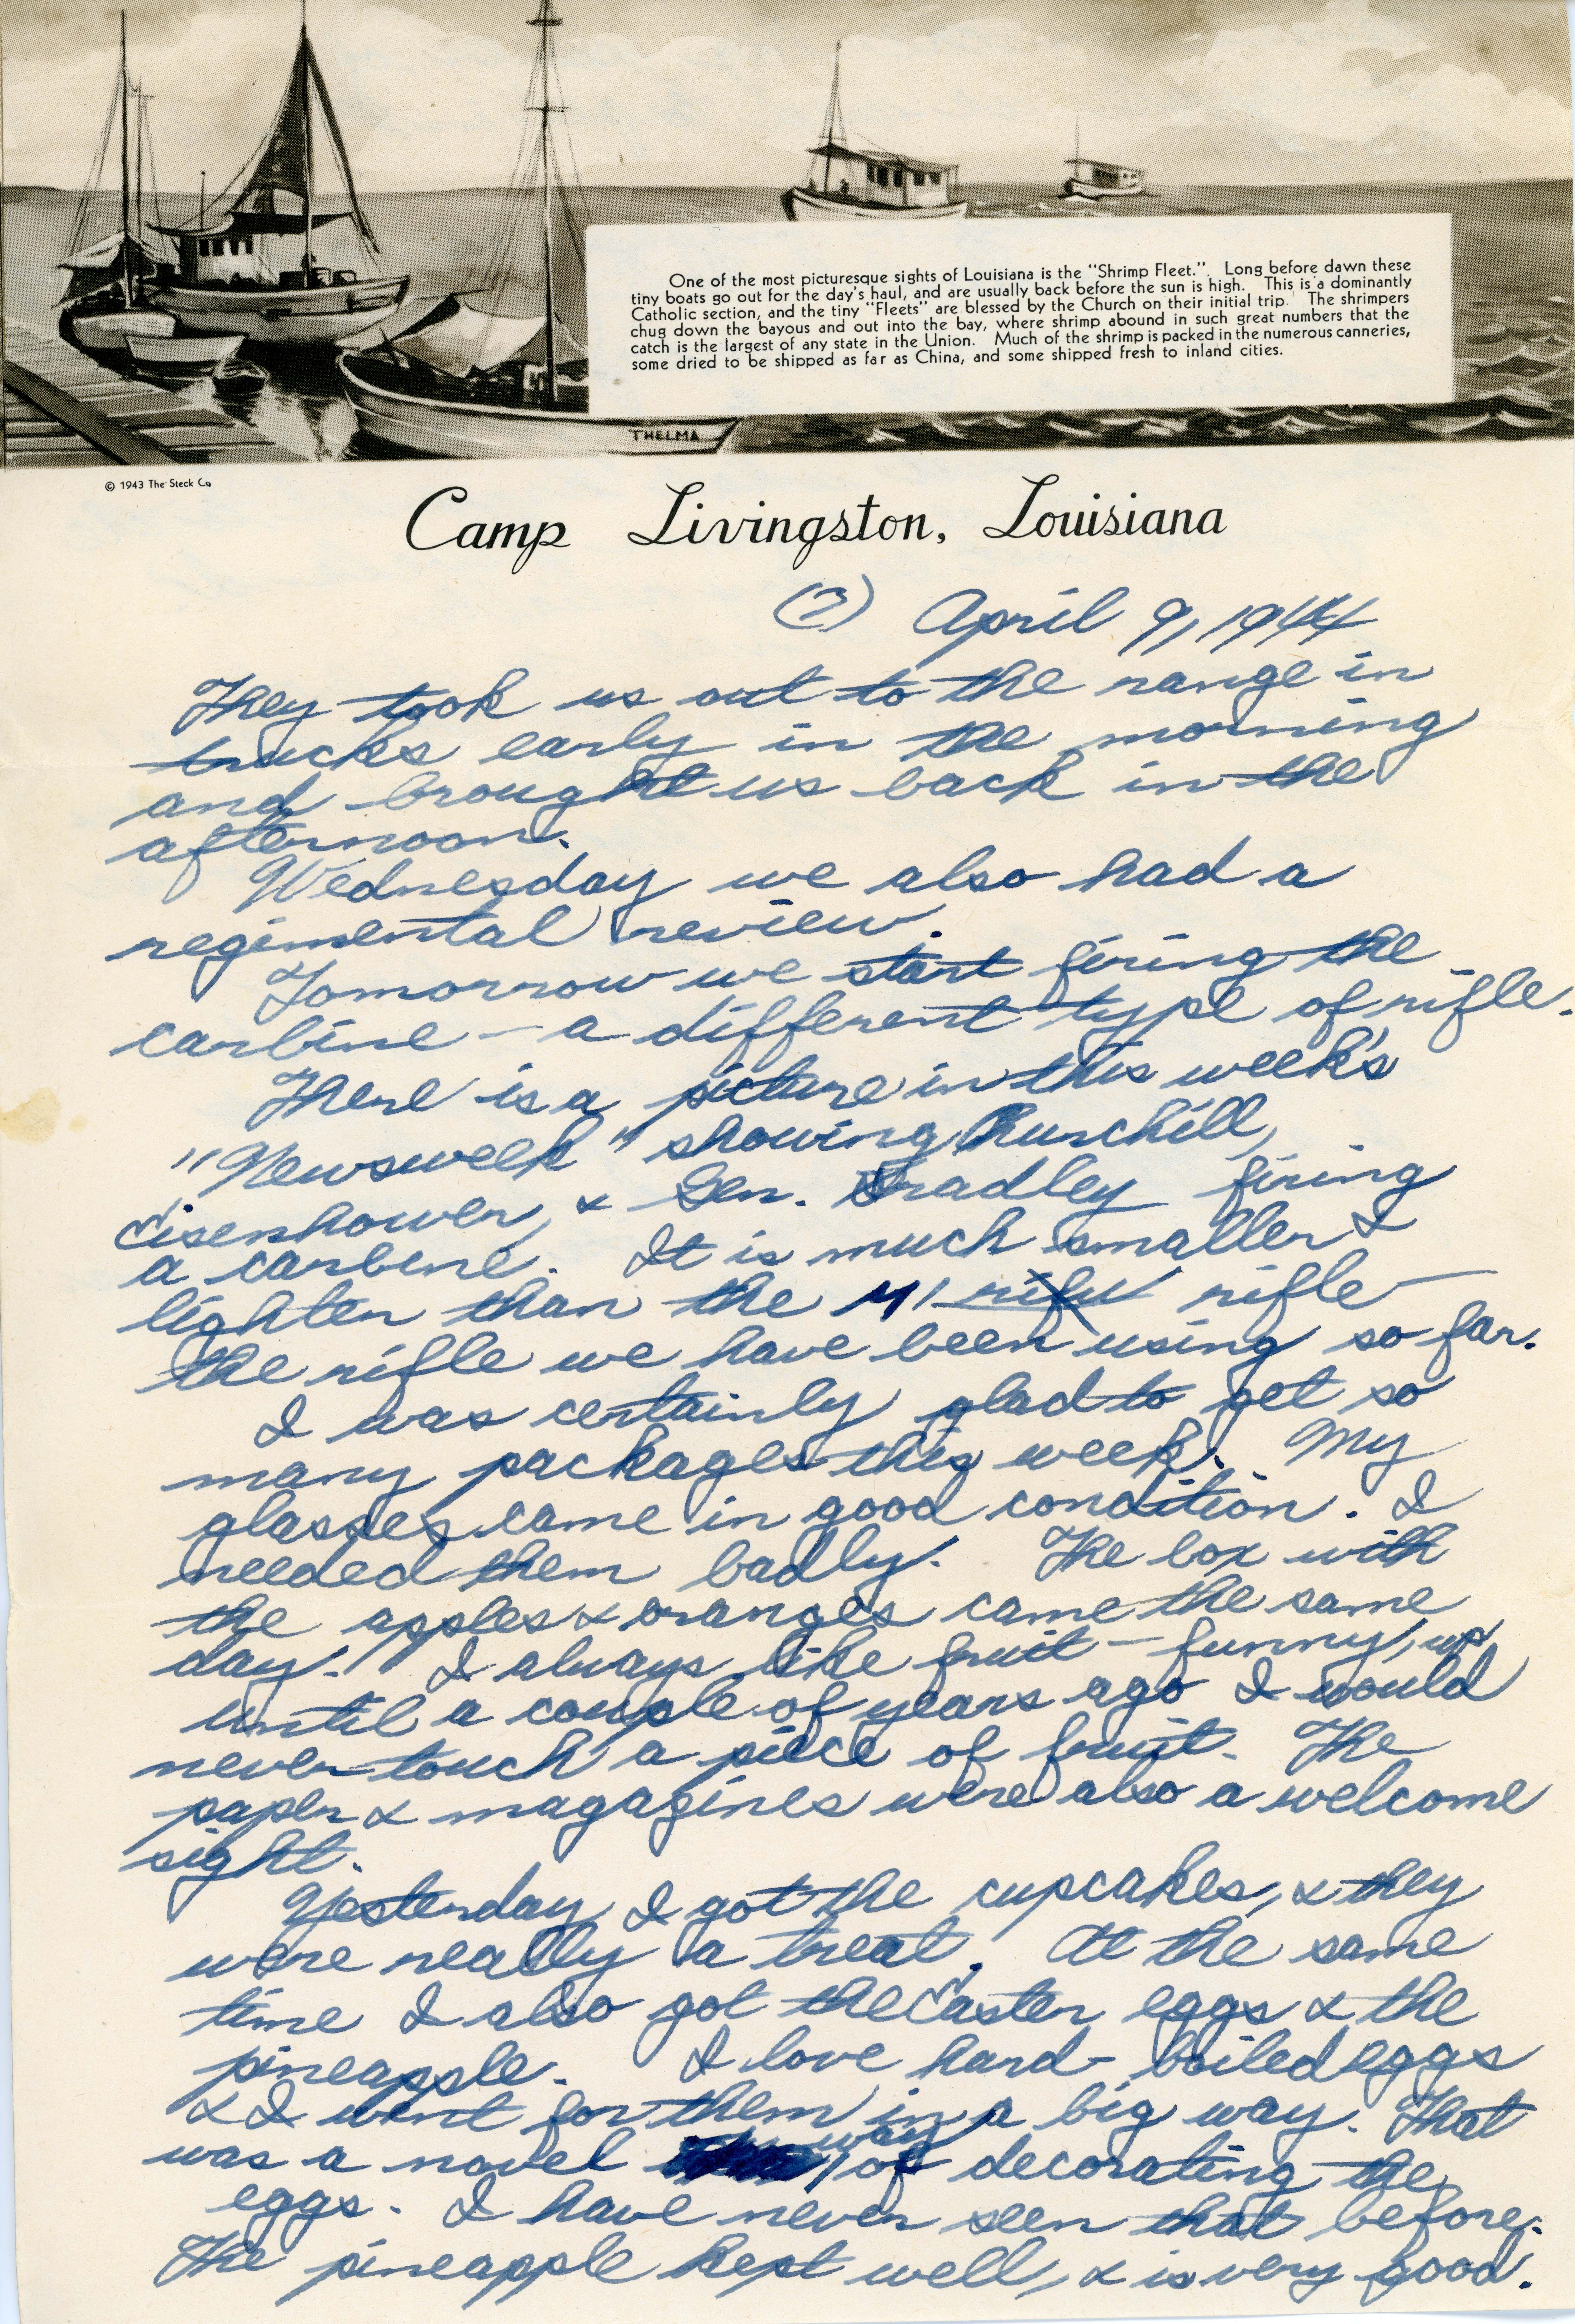 One of the most picturesque sights of Louisiana is the "Shrimp Fleet." Long before dawn these
tiny boats go out for the day's haul, and are usually back before the sun is high. This is a dominantly
Catholic section, and the tiny "Fleets" are blessed by the Church on their initial trip. The shrimpers
chug down the bayous and out into the bay, where shrimp abound in such great numbers that the
catch is the largest of any state in the Union. Much of the shrimp is packed in the numerous canneries,
some dried to be shipped as far as China, and some shipped fresh to inland cities.
THELMA
© 1943 The Steck Co
Camp Livingston, Louisiana
April 9, 1944
They took us out to the range in
trucks early in the morning
and brought us back in the
afternoon.
Wednesday we also had a
regimental review.
Tomorrow we start firing the
carbine - a different type of rifle.
There is a picture in this week's
"Newsweek" showing Churchill,
Eisenhower, & Gen. Bradley firing
a carbine. It is much smaller &
lighter than the M1 rifle rifle —
the rifle we have been using so far.
I was certainly glad to get so
many packages this week. My
glasses came in good condition. I
needed them badly. The box with
the apples & oranges came the same
day. I always like fruit — funny, up
until a couple of years ago I would
never touch a piece of fruit. The
paper & magazines were also a welcome
sight.
Yesterday I got the cupcakes, & they
were really a treat. At the same
time I also got the Easter eggs & the
pineapple. I love hard-boiled eggs
& I went for them in a big way. That
was a novel way of decorating the
eggs. I have never seen that before.
The pineapple kept well, & is very good.